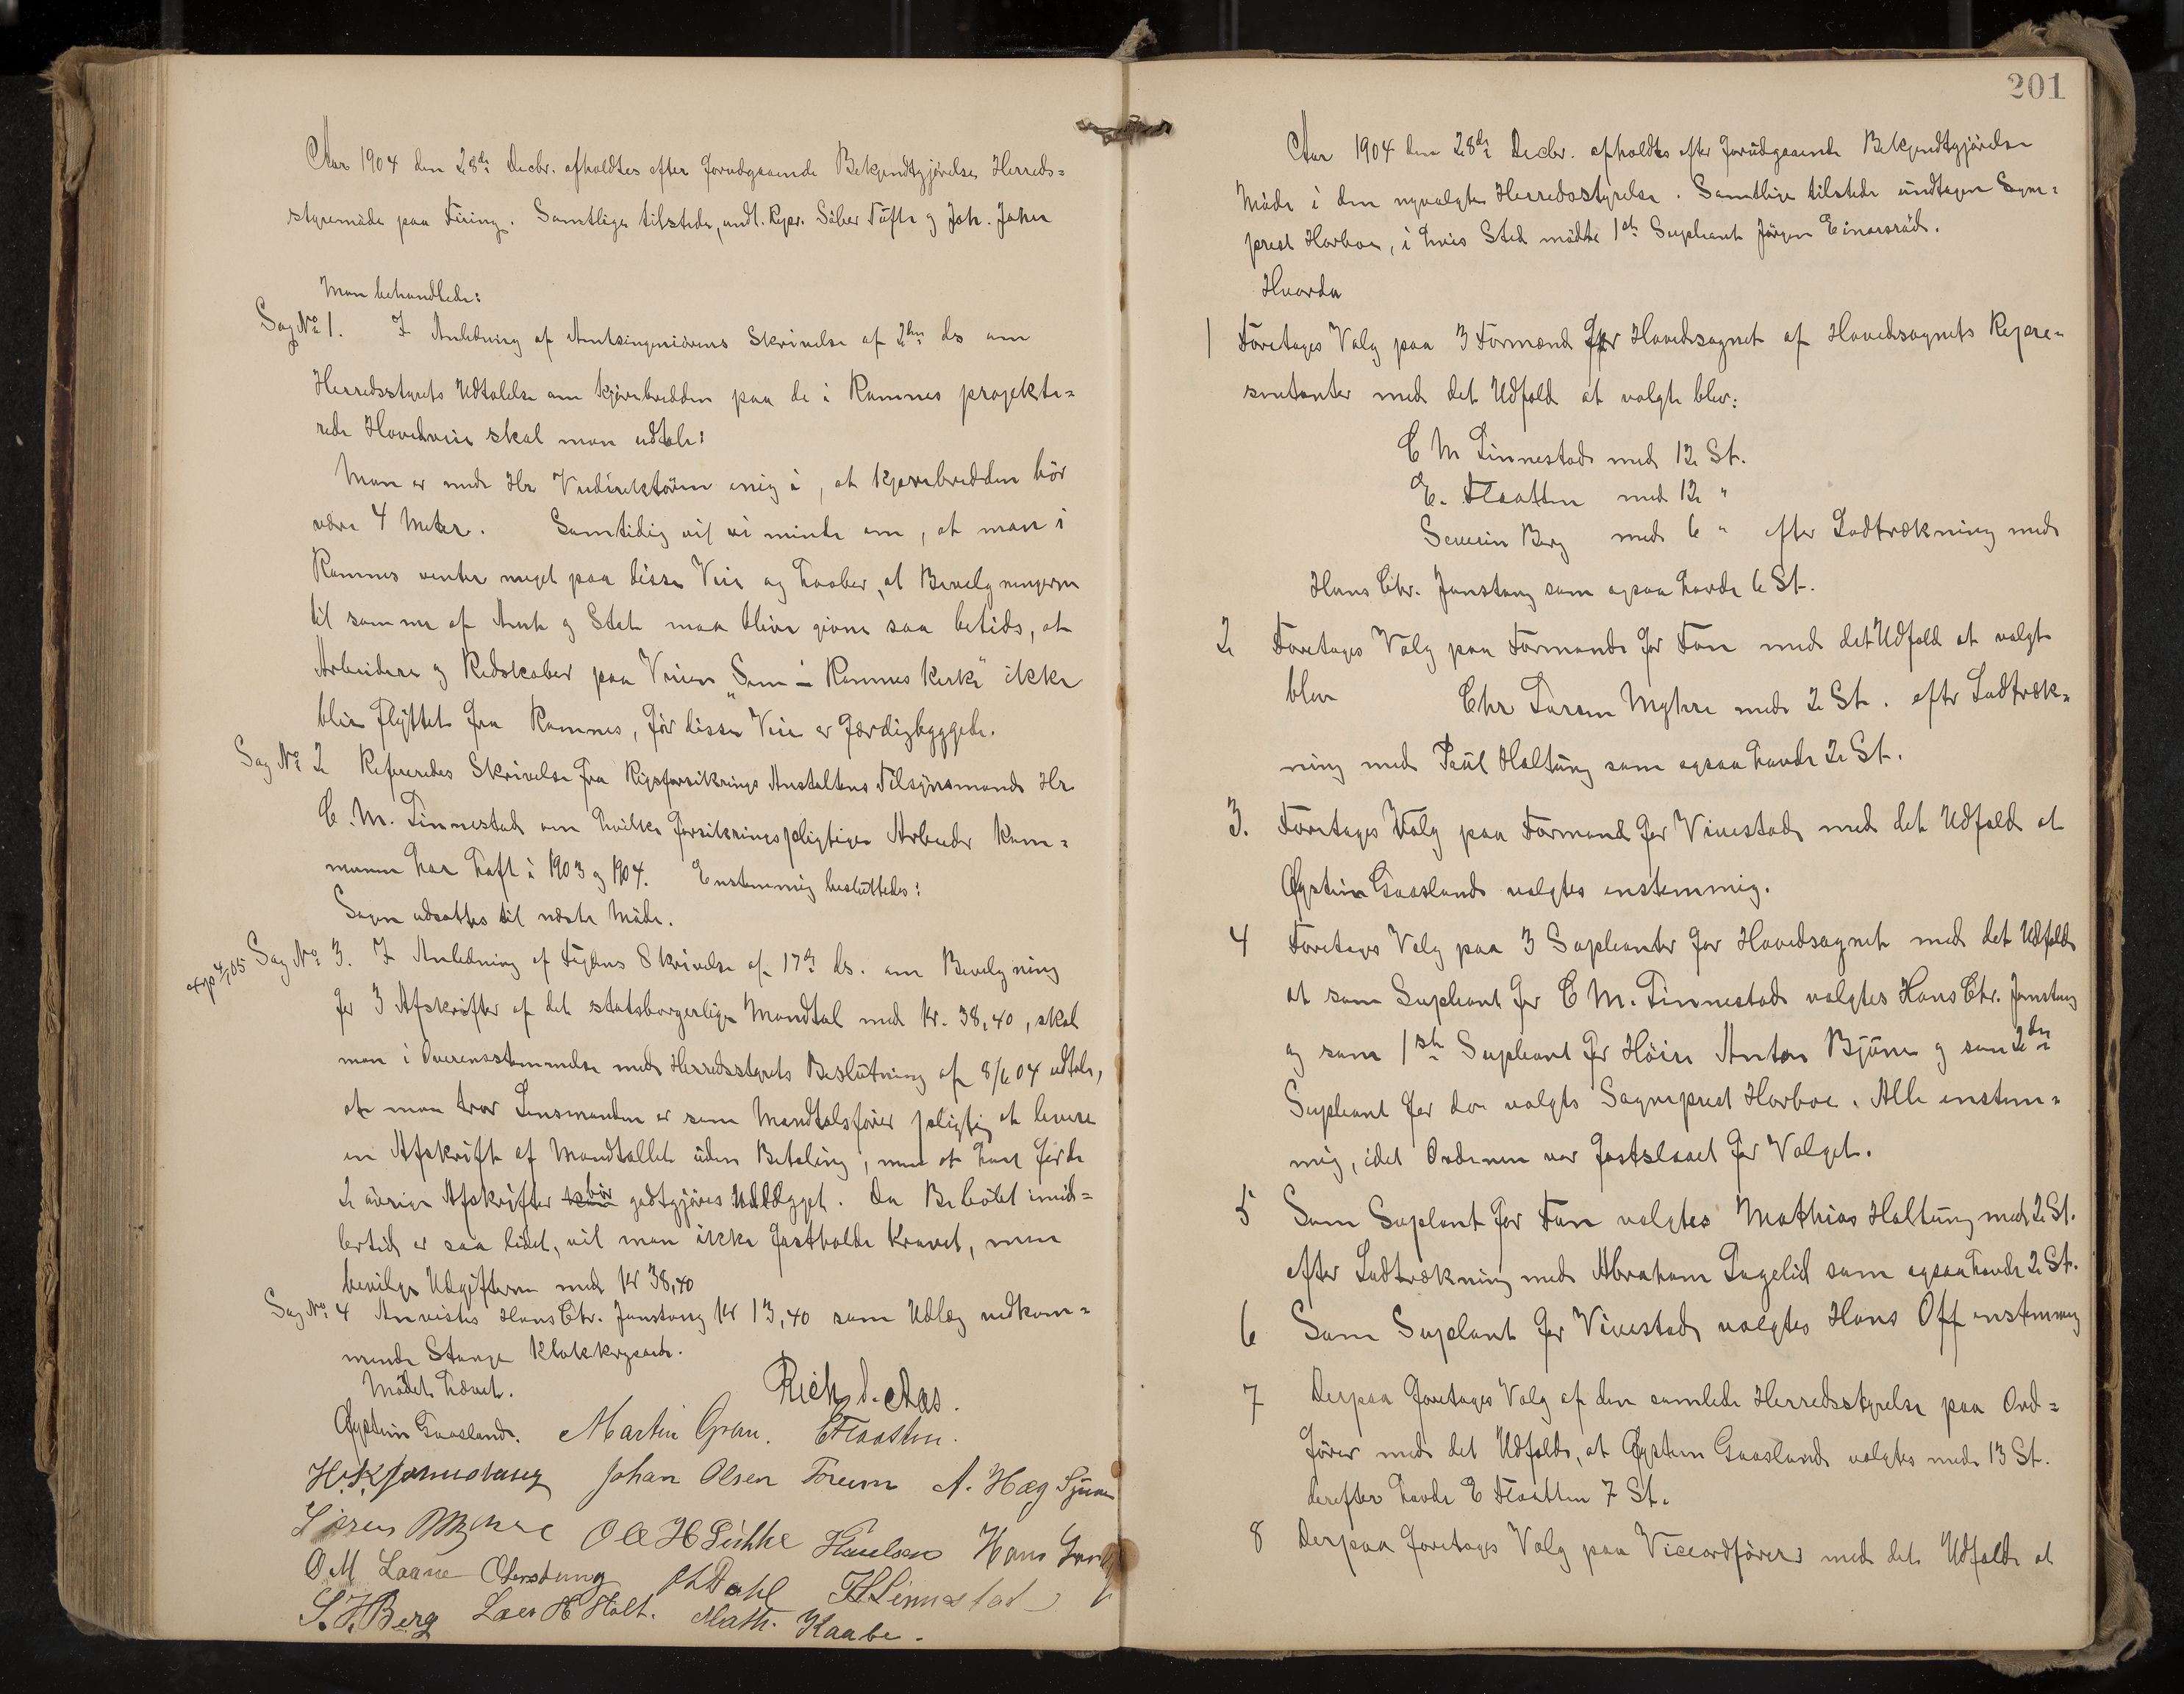 Aar 1904 den 28de Decbr. afholdtes efter forudgaaende Bekjendtgjörelse Herreds=
styremöde paa Firing. Samtlige tilstede, undt. Repr. Sölver Tufte og Joh. Johns
Man behandlede:
Sag No 1. I Anledning af Amtsingeniörens Skrivelse af 2den ds om
Herredsstyrets Udtalelse om Kjörebredden paa de i Ramnes projekte=
rede Hovedveie skal man udtale:
Man er med Hr Veidirektören enig i, at Kjørebredden bör
være 4 Meter. Samtidig vil vi minde om, at man i
Ramnes venter meget paa disse Veie og haaber, at Bevilgningerne
til samme af Amt og Stat maa blive givne saa betids, at
Arbeidere og Redskaber paa Veien "Sem – Ramnes Kirke" ikke
blir flyttet fra Ramnes, för disse Veie er færdigbyggede.
Sag No 2 Refereredes Skrivelse fra Rigsforsikrings Anstaltens Tilsynsmand Hr
C. M. Linnestad om hvilke forsikringspligtige Arbeider Kom=
munen har havt i 1903 og 1904. Enstemmig besluttedes:
Sagen udsattes til næste Möde.
exp 4/1 05 Sag No 3. I Anledning af Fogdens Skrivelse af 17de ds. om Bevilgning
for 3 Afskrifter af det statsborgerlige Mandtal med Kr. 38,40, skal
man i Overensstemmelse med Herredsstyrets Beslutning af 8/6 04 udtale,
at man tror Lensmanden er som Mandtalsfører pligtig at levere
en Afskrift af Mandtallet uden Betaling, men at han for de
2 övrige Afskrifter bör godtgjöres Udlægget. Da Belöbet imid=
lertid er saa lidet, vil man ikke fastholde Kravet, men
bevilge Udgifterne med Kr 38,40
Sag No 4 Anvistes Hans Chr. Jonstang Kr 13,40 som Udlæg vedkom=
mende Stange Klokkergaard.
Mödet hævet.
Rich. d. Aas.
Øystein Gaasland. Martin Gran. E Flaatten.
H. K. Jonnstang Johan Olsen Foreum A. Hæg
Sören Myhre Ole H Lichke Paulsen Hans
O M Laane Chr Dahl H Linnestad
S. J. Berg Lars H Holt. Math. Kaabe.
201
Aar 1904 den 28de Decbr. afholdtes efter forudgaaende Bekjendtgjörelse
Möde i den nyvalgte Herredsstyrelse. Samtlige tilstede undtagen Sogne=
prest Horboe, i hvis Sted mödte 1ste Supleant Jörgen Einarsröd.
Hvorda
1 Foretoges Valg paa 3 Formænd for Hovedsognet af Hovedsognets Repræ=
sentanter med det Udfald at valgte blev:
C M Linnestad med 12 St.
E. Flaatten med 12 "
Severin Berg med 6 " efter Lodtrækning med
Hans Chr. Jonstang som ogsaa havde 6 St.
2 Foretoges Valg paa Formand for Fon med det Udfald at valgt
blev Chr Larsen Myhre med 2 St. efter Lodtræk=
ning med Paul Haltung som ogsaa havde 2 St.
3. Foretoges Valg paa Formand for Vivestad med det Udfald at
Øystein Gaasland valgtes enstemmig.
4 Foretoges Valg paa 3 Supleanter for Hovedsognet med det Udfald
at som Supleant for C M. Linnestad valgtes Hans Chr. Jonstang
og som 1ste Supleant for Höire Anton Bjune og som 2den
Supleant for do valgts Sogneprest Horboe. Alle enstem=
mig, idet Ordenen var fastslaaet för Valget.
5 Som Suplant for Fon valgtes Mathias Haltung med 2 St.
efter Lodtrækning med Abraham Lagelid som ogsaa havde 2 St.
6 Som Suplant for Vivestad valgtes Hans Off enstemmig
7 Derpaa foretoges Valg af den samlede Herredsstyrelse paa Ord=
förer med det Udfald, at Øystein Gaasland valgtes med 13 St.
derefter havde E Flaatten 7 St.
8 Derpaa foretoges Valg paa Viceordförer med det Udfald at